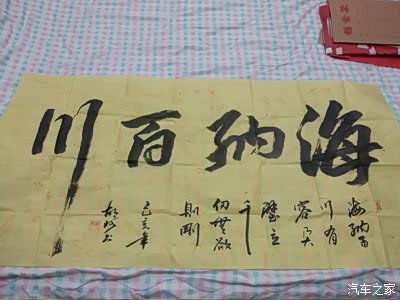 海納百川
海納百
川有
容乃大
壁立
千
仞無欲
則剛
己亥年
汽车之家